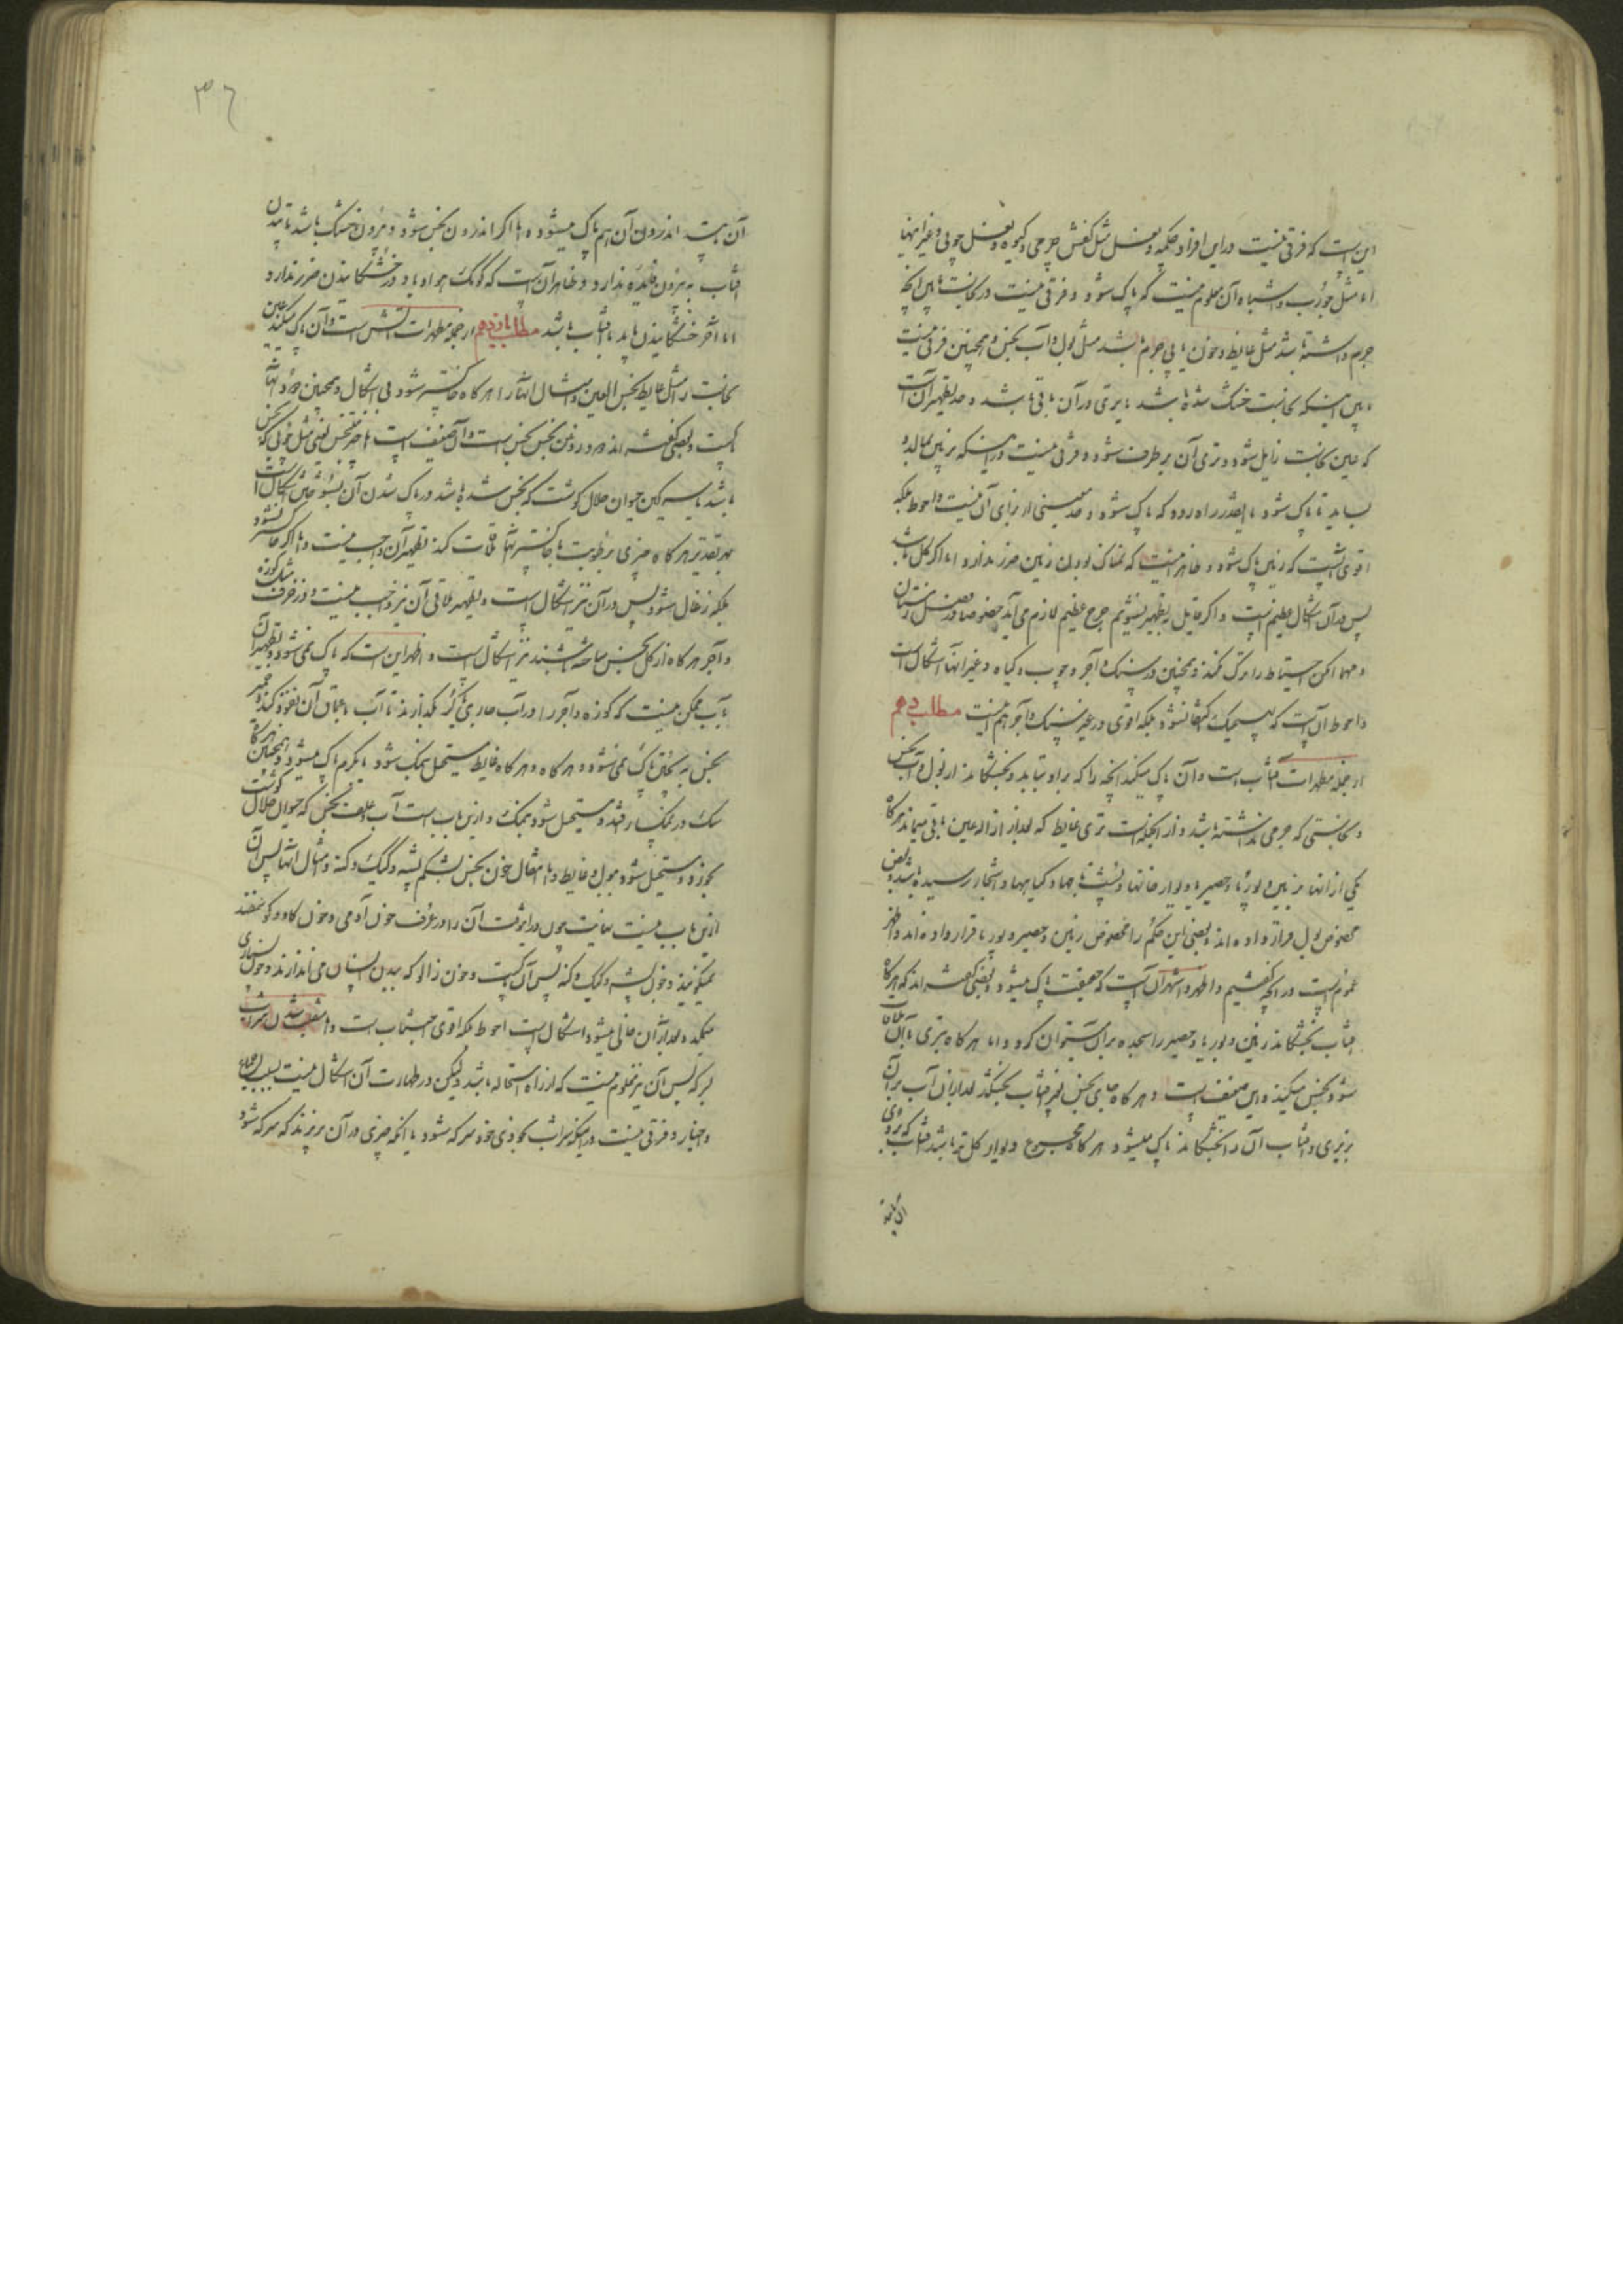 این است که فرقی نیست در این افراد چکمه و نعل مثل کفش چرمی و گیوه و نعل چوبی و غیر اینها
اما مثل جورب و اشباه آن معلوم نیست که پاک شود و فرقی نیست در نجاست مابین آنچه
جرم داشته باشد مثل غایط و خون یا بی جرم باشد مثل بول و آب نجس و همچنین فرقی نیست
مابین اینکه نجاست خشک شده باشد یا تری در آن باقی باشد و حد تطهیر آن است
که عین نجاست زایل شود و تری آن برطرف شود و فرقی نیست در اینکه بزمین بمالد و
بساید تا پاک شود یا اینقدر راه رود که پاک شود و حد معینی از برای آن نیست و احوط بلکه
اقوی آنست که زمین پاک شود و ظاهر اینست که نمناک بودن زمین ضرر ندارد اما اگر گل باشد
پس در آن اشکال عظیم است و اگر قایل بتطهیر نشویم حرج عظیم لازم می آید خصوصا در فصل زمستان
و مهما امکن احتیاط را ترک نکند و همچنین در سنک و آجر و چوب و گیاه و غیر آنها اشکال است
و احوط آن است که بهیچیک اکتفا نشود بلکه اقوی در غیر سنک و آجر هم نیست مطلب دهم
از جمله مطهرات آفتاب است و آن پاک میکند آنچه را که بر او بتابد و بخشکاند از بول و آب نجس
و نجاستی که جرمی نداشته باشد و از آنجمله است تری غایط که بعد از ازاله عین باقی میماند هرگاه
یکی از آنها بزمین و بوریا و حصیر یا دیوار خانها و پشت بامها و گیاهها و اشجار رسیده باشد و بعضی
مخصوص بول قرار داده اند و بعضی این حکم را مخصوص زمین و حصیر و بوریا قرار داده اند و اظهر
عموم است در آنچه گفتیم و اظهر و اشهر آن است که حقیقت پاک میشود و بعضی گفته اند که هرگاه
آفتاب بخشکاند زمین و بوریا و حصیر را سجده بر آن میتوان کرد و اما هرگاه بتری با آن ملاقات
شود نجس میکند و این ضعیف است و هرگاه جای نجس بغیر آفتاب بخشکد بعد از آن آب بر آن
بریزی و آفتاب آن را بخشکاند پاک میشود هرگاه مجموع دیوار گل تر باشد آفتاب که بر وی
آن بتابد
٣٦
آن بتابد اندرون آن هم پاک میشود و اما اگر اندرون نجس شود و بیرون خشک باشد تابیدن
آفتاب به بیرون فایده ندارد و ظاهر آن است که کومک هوا و باد در خشکانیدن ضرر ندارد
اما آخر خشکانیدن باید بآفتاب باشد مطلب یازدهم از جمله مطهرات آتش است و آن پاک میکند عین
نجاست را مثل غایط و نجس العین و امثال آنها را هرگاه خاکستر شود بی اشکال و همچنین دود آنها
پاکست و بعضی گفته اند دود روغن نجس نجس است و آن ضعیف است و اما چیز متنجس یعنی مثل چوبی که نجس
باشد یا سرگین حیوان حلال گوشت که نجس شده باشد در پاک شدن آن بسوختن اشکال است
بهر تقدیر هرگاه چیزی برطوبت با خاکستر آنها ملاقات کند تطهیر آن واجب نیست و اما اگر خاکستر نشود
بلکه زغال شود پس در آن نیز اشکال است و تطهیر ملاقی آن نیز واجب نیست و در ظرف مثل کوزه
و آجر هرگاه از گل نجس ساخته باشند نیز اشکال است و اظهر این است که پاک نمی شود و تطهیر آن
بآب ممکن نیست که کوزه و آجر را در آب جاری یا کر بگذارند تا آب باعماق آن نفوذ کند و خمیر
نجس به پختن پاک نمی شود و هرگاه و هرگاه غایط مستحیل بخاک شود یا کرم پاک میشود و همچنین هرگاه
سک در نمکسار افتد و مستحیل شود بنمک و ازین باب است آب و علف نجس که حیوان حلال گوشت
بخورد و مستحیل شود ببول و غایط و اما انتقال خون نجس بشکم پشه و کیک و کنه و مثال آنها پس آن
ازین باب نیست نهایت چون در اینوقت آن را در عرف خون آدمی و خون گاو و گوسفند
نمیگویند و خون پشه و کیک و کنه پس آن پاکست و خون زالو که ببدن انسان می اندازند و خون بسیاری
میمکد و بعد از آن قی میشود اشکال است احوط بلکه اقوی اجتناب است و اما منقلب شدن شراب
بسرکه پس آن نیز معلوم نیست که از راه استحاله باشد ولیکن در طهارت آن اشکال نیست بسبب اجماع
و اخبار و فرقی نیست در اینکه شراب بخودی خود سرکه شود یا آنکه چیزی در آن بریزند که سرکه شود